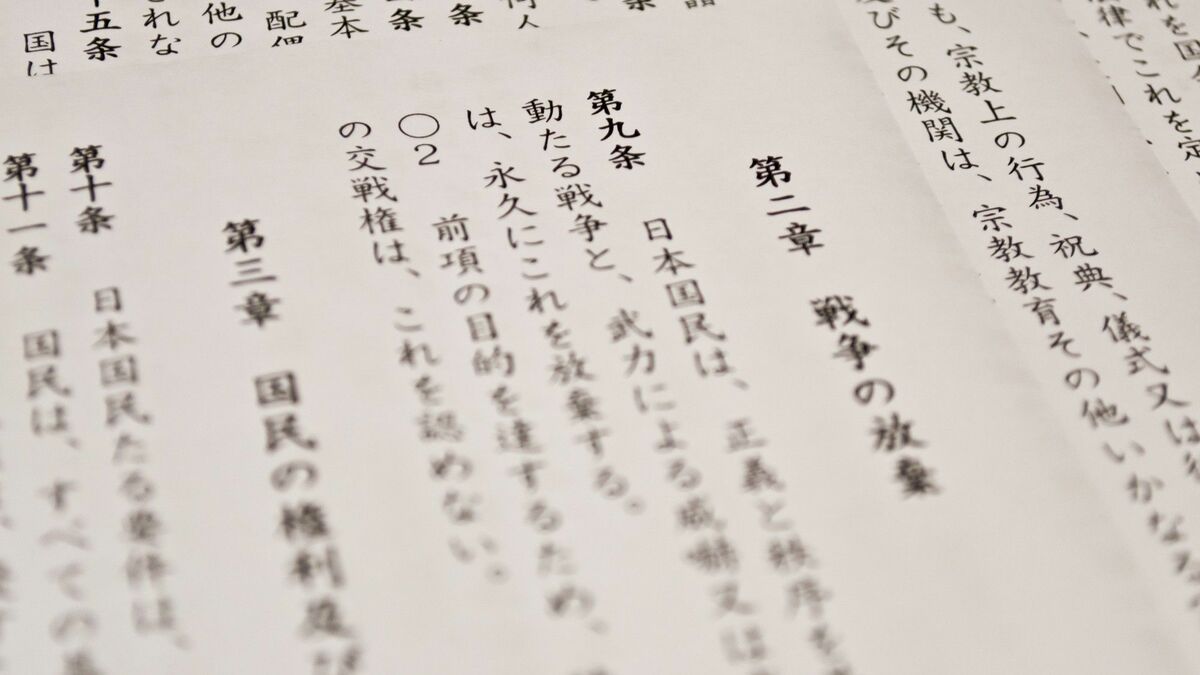 れを国
律でこれを定
も、宗教上の行為、祝典、儀式又は
びその機関は、宗教教育その他いかなる
第二章 戦争の放棄
第九条 日本国民は、正義と秩序を
動たる戦争と、武力による威嚇又は
は、永久にこれを放棄する。
○2 前項の目的を達するため、
の交戦権は、これを認めない。
第三章 国民の権利及び
第十条 日本国民たる要件は、
第十一条 国民は、すべての基
条
条
条
基本
配偶
他の
れな
十五条
国は